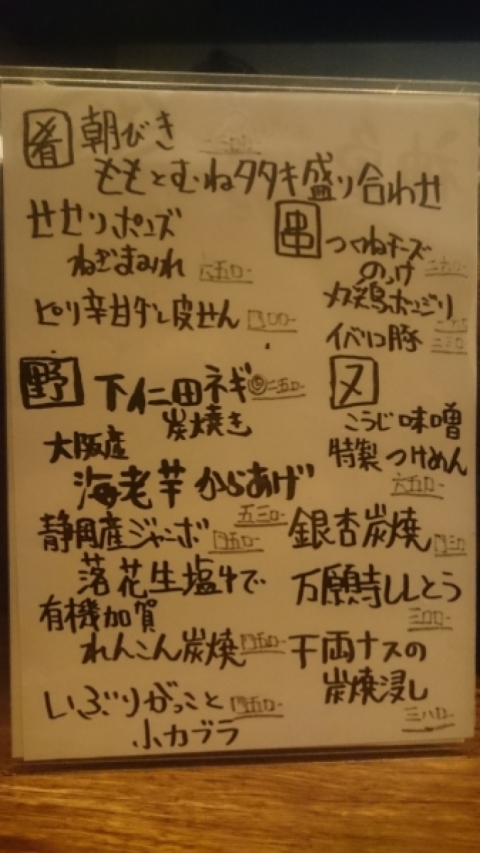 肴 朝びき
ももとむねタタキ盛り合わせ
せせりポンズ
ねぎまみれ 六五〇-
ピリ辛甘ダレ皮せん
串 つくねチーズ
のっけ
丸鶏ぼんぢり
イベリコ豚
野 下仁田ネギ
炭焼き
大阪産
海老芋からあげ
五三〇-
静岡産ジャンボ 四五〇-
落花生塩ゆで
有機加賀
れんこん炭焼 四五〇-
いぶりがっこと 四五〇-
小カブラ
ヌ
こうじ味噌
特製つけめん
六五〇-
銀杏炭焼
万願寺ししとう
三〇〇-
千両ナスの
炭焼浸し
三八〇-